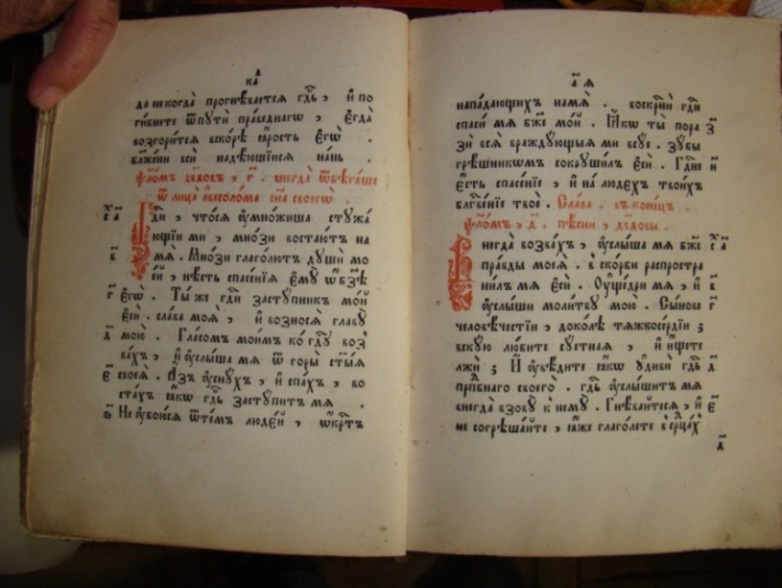 к҃а
да не когда̀ прогнѣ́вается гдⷭ҇ь, и҆ по
ги́бнете ѿ пути̑ пра́веднагѡ, є҆гда̀
возгори́тся вско́рѣ ꙗ҆́рость є҆гѡ̀.
бл҃же́ни всѝ надѣ́ющїися на́нь.
ѱало́мъ дв҃довъ, г҃. внегда̀ ѿбѣга́ше
ѿ лица̀ а҆весоло́ма сн҃а своегѡ̀
Гдⷭ҇и, что́ ся ᲂу҆мно́жиша стꙋжа́
ющїи ми, мно́зи востаю́тъ на
мя̀. Мно́зи глаго́лютъ дꙋшѝ мо
е́й, нѣ́сть спасе́нїя є҆мꙋ̀ ѡ҆ бз҃ѣ
г҃ є҆гѡ̀. Ты́ же гдⷭ҇и застꙋ́пникъ мо́й
є҆сѝ. сла́ва моя̀, и҆ вознося̀ главꙋ̀
д҃ мою̀. Гла́сомъ мои́мъ ко гдⷭ҇ꙋ воз
ва́хъ, и҆ ᲂу҆слы́ша мя ѿ горы̀ ст҃ы́я
є҃ своея̀. А҆́зъ ᲂу҆снꙋ́хъ, и҆ спа́хъ, во
ста́хъ ꙗ҆́кѡ гдⷭ҇ь застꙋ́питъ мя.
ѕ҃ Не ᲂу҆бою́ся ѿ те́мъ людє́й, ѡ҆́крⷭ҇тъ
напа́дающихъ на мя̀. воскрⷭ҇нѝ гдⷭ҇и
спаси́ мя бж҃е мо́й. Ꙗ҆́кѡ ты̀ пора з҃
зѝ вся̀ враждꙋ́ющыя ми всꙋе. зꙋ́бы
грѣ́шникѡмъ сокрꙋши́лъ є҆сѝ. Гдⷭ҇не и҃
є҆́сть спасе́нїе, и҆ на лю́дехъ твои́хъ
блгⷭ҇ве́нїе твоѐ. Сла́ва. в коне́цъ.
ѱало́мъ, д҃. пѣ́сни, дв҃довы.
Внегда̀ воззва́хъ, ᲂу҆слы́ша мя бж҃е
пра́вды моея̀. в ско́рби распростра
ни́лъ мя є҆сѝ. Оу҆ще́дри мя, и҆ в҃
ᲂу҆слы́ши моли́твꙋ мою̀. Сы́нове г҃
человѣ́честїи, доко́лѣ тяжкосе́рдїи;
вскꙋ́ю лю́бите сꙋ́етная, и҆ и҆́щете
лжѝ; И҆ ᲂу҆вѣ́дите ꙗ҆́кѡ ᲂу҆дивѝ гдⷭ҇ь д҃
прпⷣбнаго своего̀. гдⷭ҇ь ᲂу҆слы́шитъ мя
внегда̀ взовꙋ̀ к немꙋ̀. Гнѣ́вайтеся, и҆ є҃
не согрѣша́йте, ꙗ҆́же глаго́лете в срⷣца́хъ